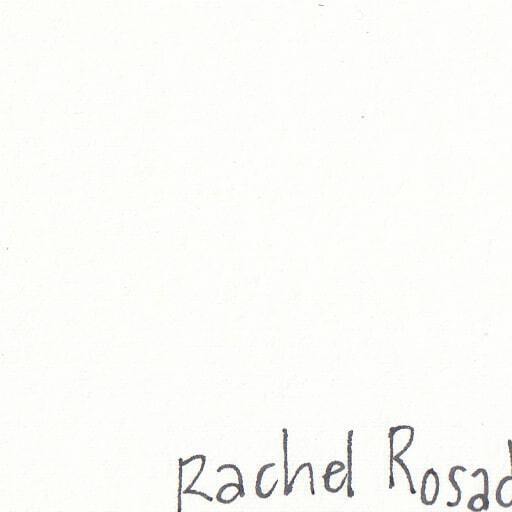 Rachel Rosad